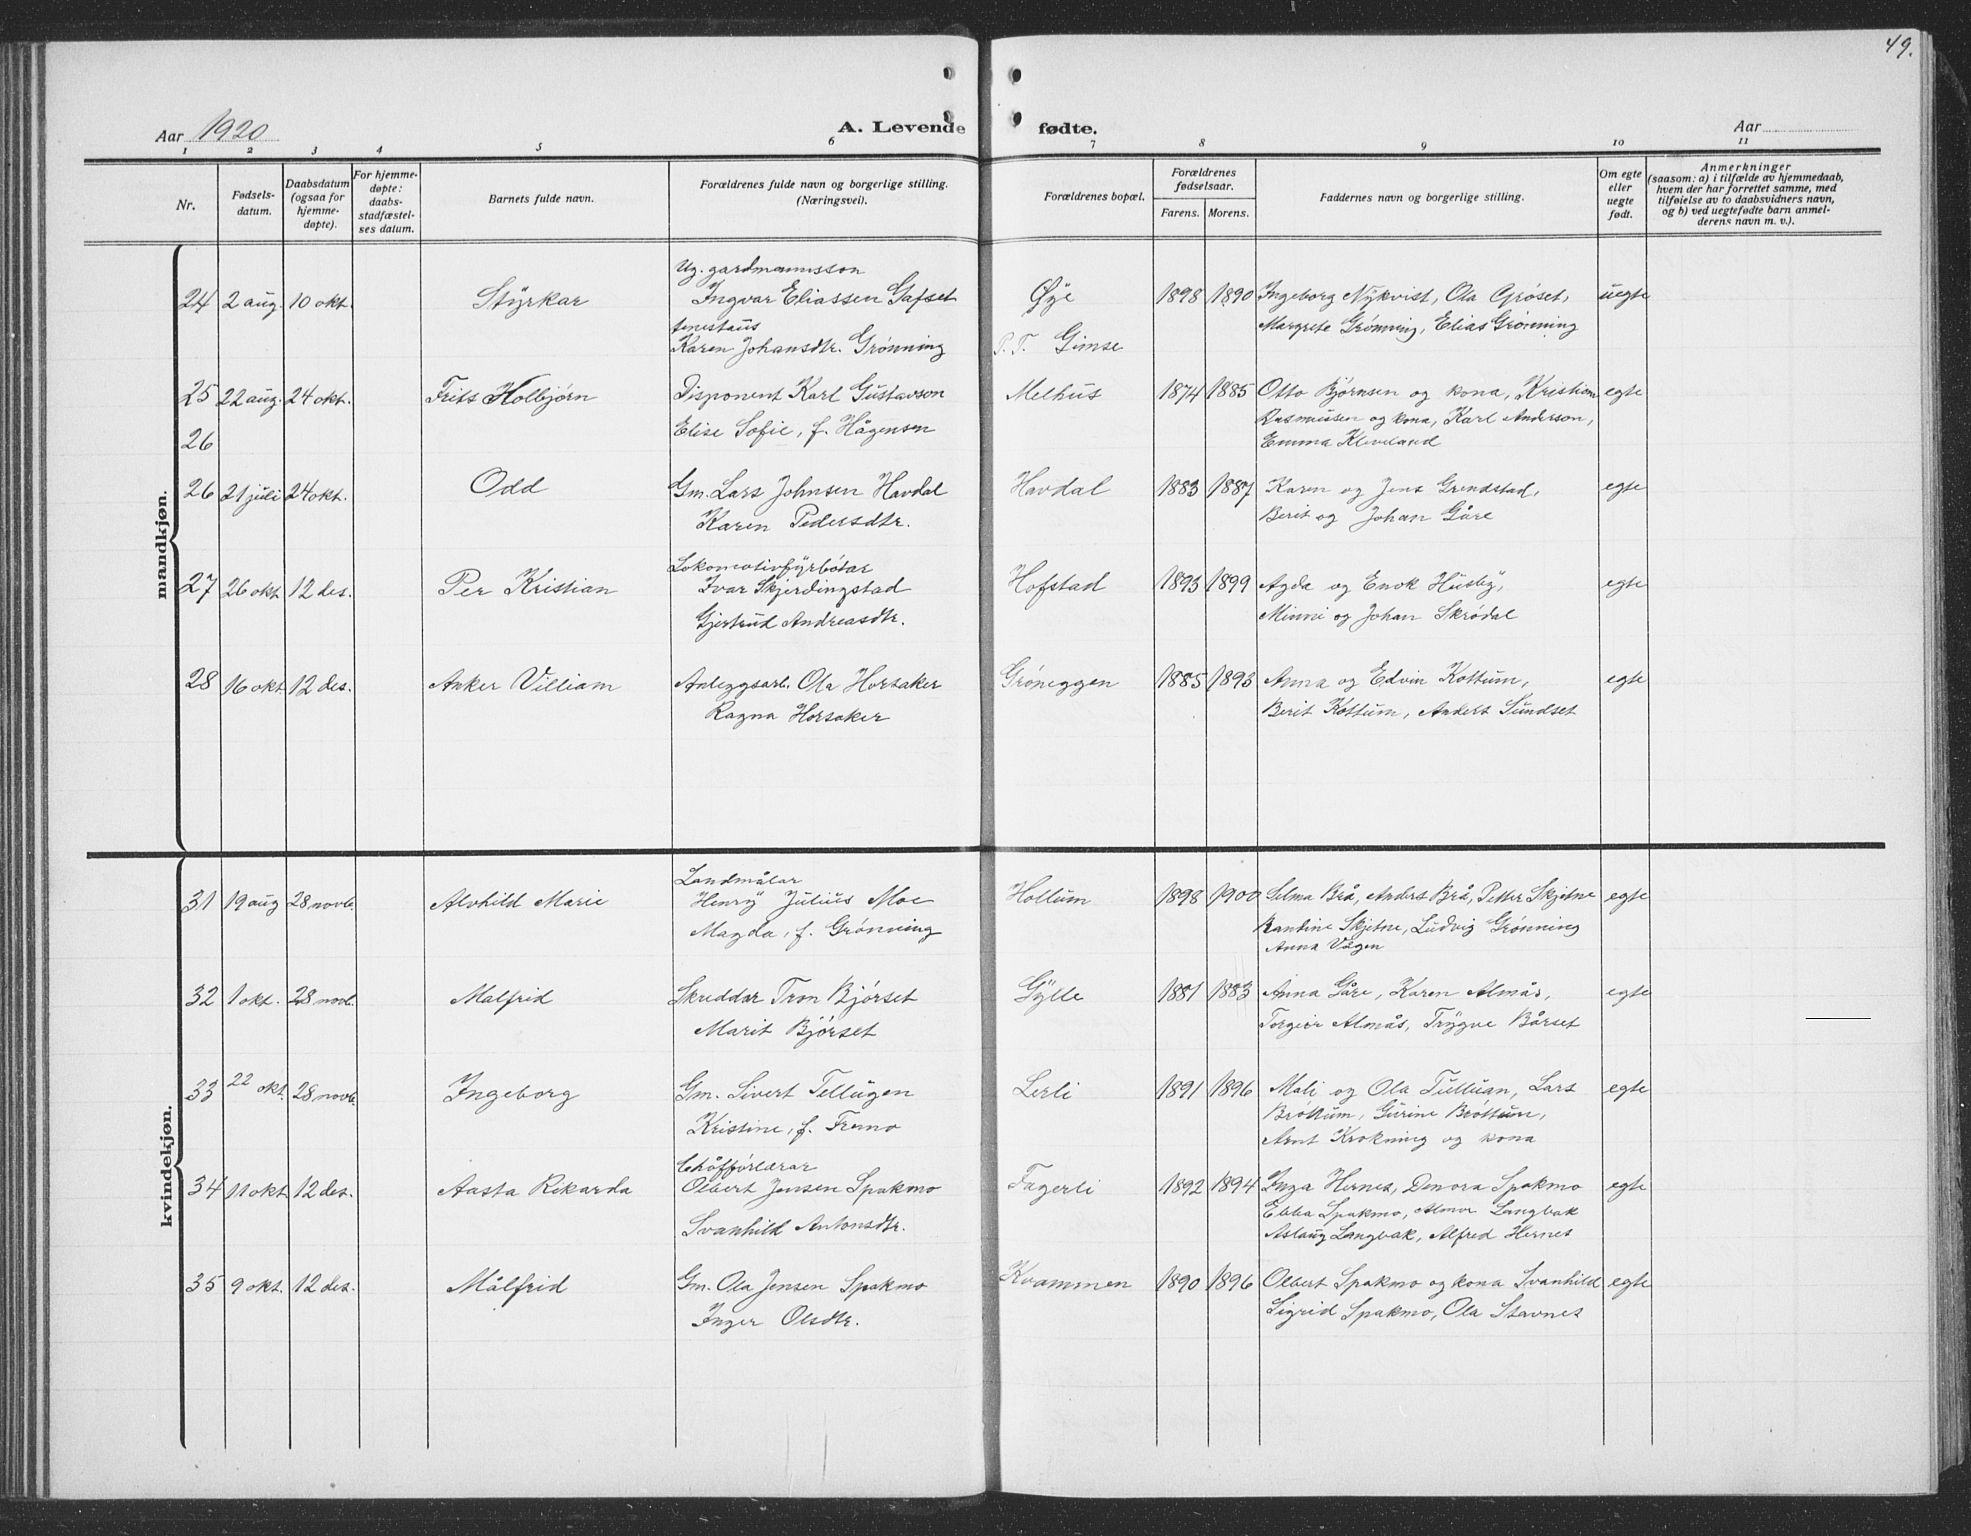 49.
Aar 1920
A. Levende fødte.
Aar
1 2 3 4 5 6 7 8 9 10 11
Nr.
Fødsels-
datum.
Daabsdatum
(ogsaa for
hjemme-
døpte).
For hjemme-
døpte:
daabs-
stadfæstel-
ses datum.
Barnets fulde navn.
Forældrenes fulde navn og borgerlige stilling.
(Næringsvei).
Forældrenes bopæl.
Forældrenes
fødselsaar.
Farens. Morens.
Faddernes navn og borgerlige stilling.
Om egte
eller
uegte
født.
Anmerkninger
(saasom: a) i tilfælde av hjemmedaab,
hvem der har forrettet samme, med
tilføielse av to daabsvidners navn,
og b) ved uegtefødte barn anmel-
derens navn m. v.).
mandkjøn.
Ug. gardmannsson
24 2 aug. 10 okt. Styrkar Ingvar Eliassen Gafset Øye 1898 1890 Ingeborg Nykvist, Ola Grøset, uegte
tenestaus Margrete Grønning, Elias Grønning
Karen Johansdtr. Grønning P.T. Gimse
25 22 aug. 24 okt. Frits Holbjørn Disponent Karl Gustavson Melhus 1874 1885 Otto Bjørnsen og kona, Kristian egte
Rasmussen og kona, Karl Anderson,
26 Elise Sofie, f. Hågensen Emma Kleveland
26 21 juli 24 okt. Odd Gm. Lars Johnsen Havdal Havdal 1883 1887 Karen og Jens Grendstad, egte
Karen Pedersdtr. Berit og Johan Gåre
Lokomotivfyrbøtar
27 26 okt 12 des. Per Kristian Ivar Skjerdingstad Hofstad 1893 1899 Agda og Enok Husby, egte
Gjertrud Andreasdtr. Minni og Johan Skrødal
28 16 okt 12 des. Anker Villiam Anleggsarb. Ola Horsaker Grøneggen 1885 1893 Anna og Edvin Kottum, egte
Ragna Horsaker Berit Kottum, Anders Sundset
kvindekjøn.
Landmålar
31 19 aug 28 novb. Alvhild Marie Henry Julius Moe Hollum 1898 1900 Selma Brå, Anders Brå, Petter Skjetne egte
Magda, f. Grønning Randine Skjetne, Ludvig Grønning
Anna Vågen
32 1 okt. 28 novb. Malfrid Skreddar Tron Bjørset Gylle 1881 1883 Anna Gåre, Karen Almås, egte
Marit Bjørset Torgeir Almås, Trygve Bårset
33 22 okt. 28 novb. Ingeborg Gm. Sivert Tellugen Lerli 1891 1896 Mali og Ola Tulluan, Lars egte
Kristine, f. Fremo Brøttum, Gurine Brøttum,
Arnt Krokning og kona
Chåffførlærar
34 11 okt 12 des. Aasta Rikarda Olbert Jensen Spakmo Fagerli 1892 1894 Inga Hernes, Denora Spakmo egte
Ebba Spakmo, Almar Langbak
Svanhild Antonsdtr. Aslaug Langbak, Alfred Hernes
35 9 okt. 12 des. Målfrid Gm. Ola Jensen Spakmo Kvammen 1890 1896 Olbert Spakmo og kona Svanhild egte
Inger Olsdtr. Sigrid Spakmo, Ola Stavnes